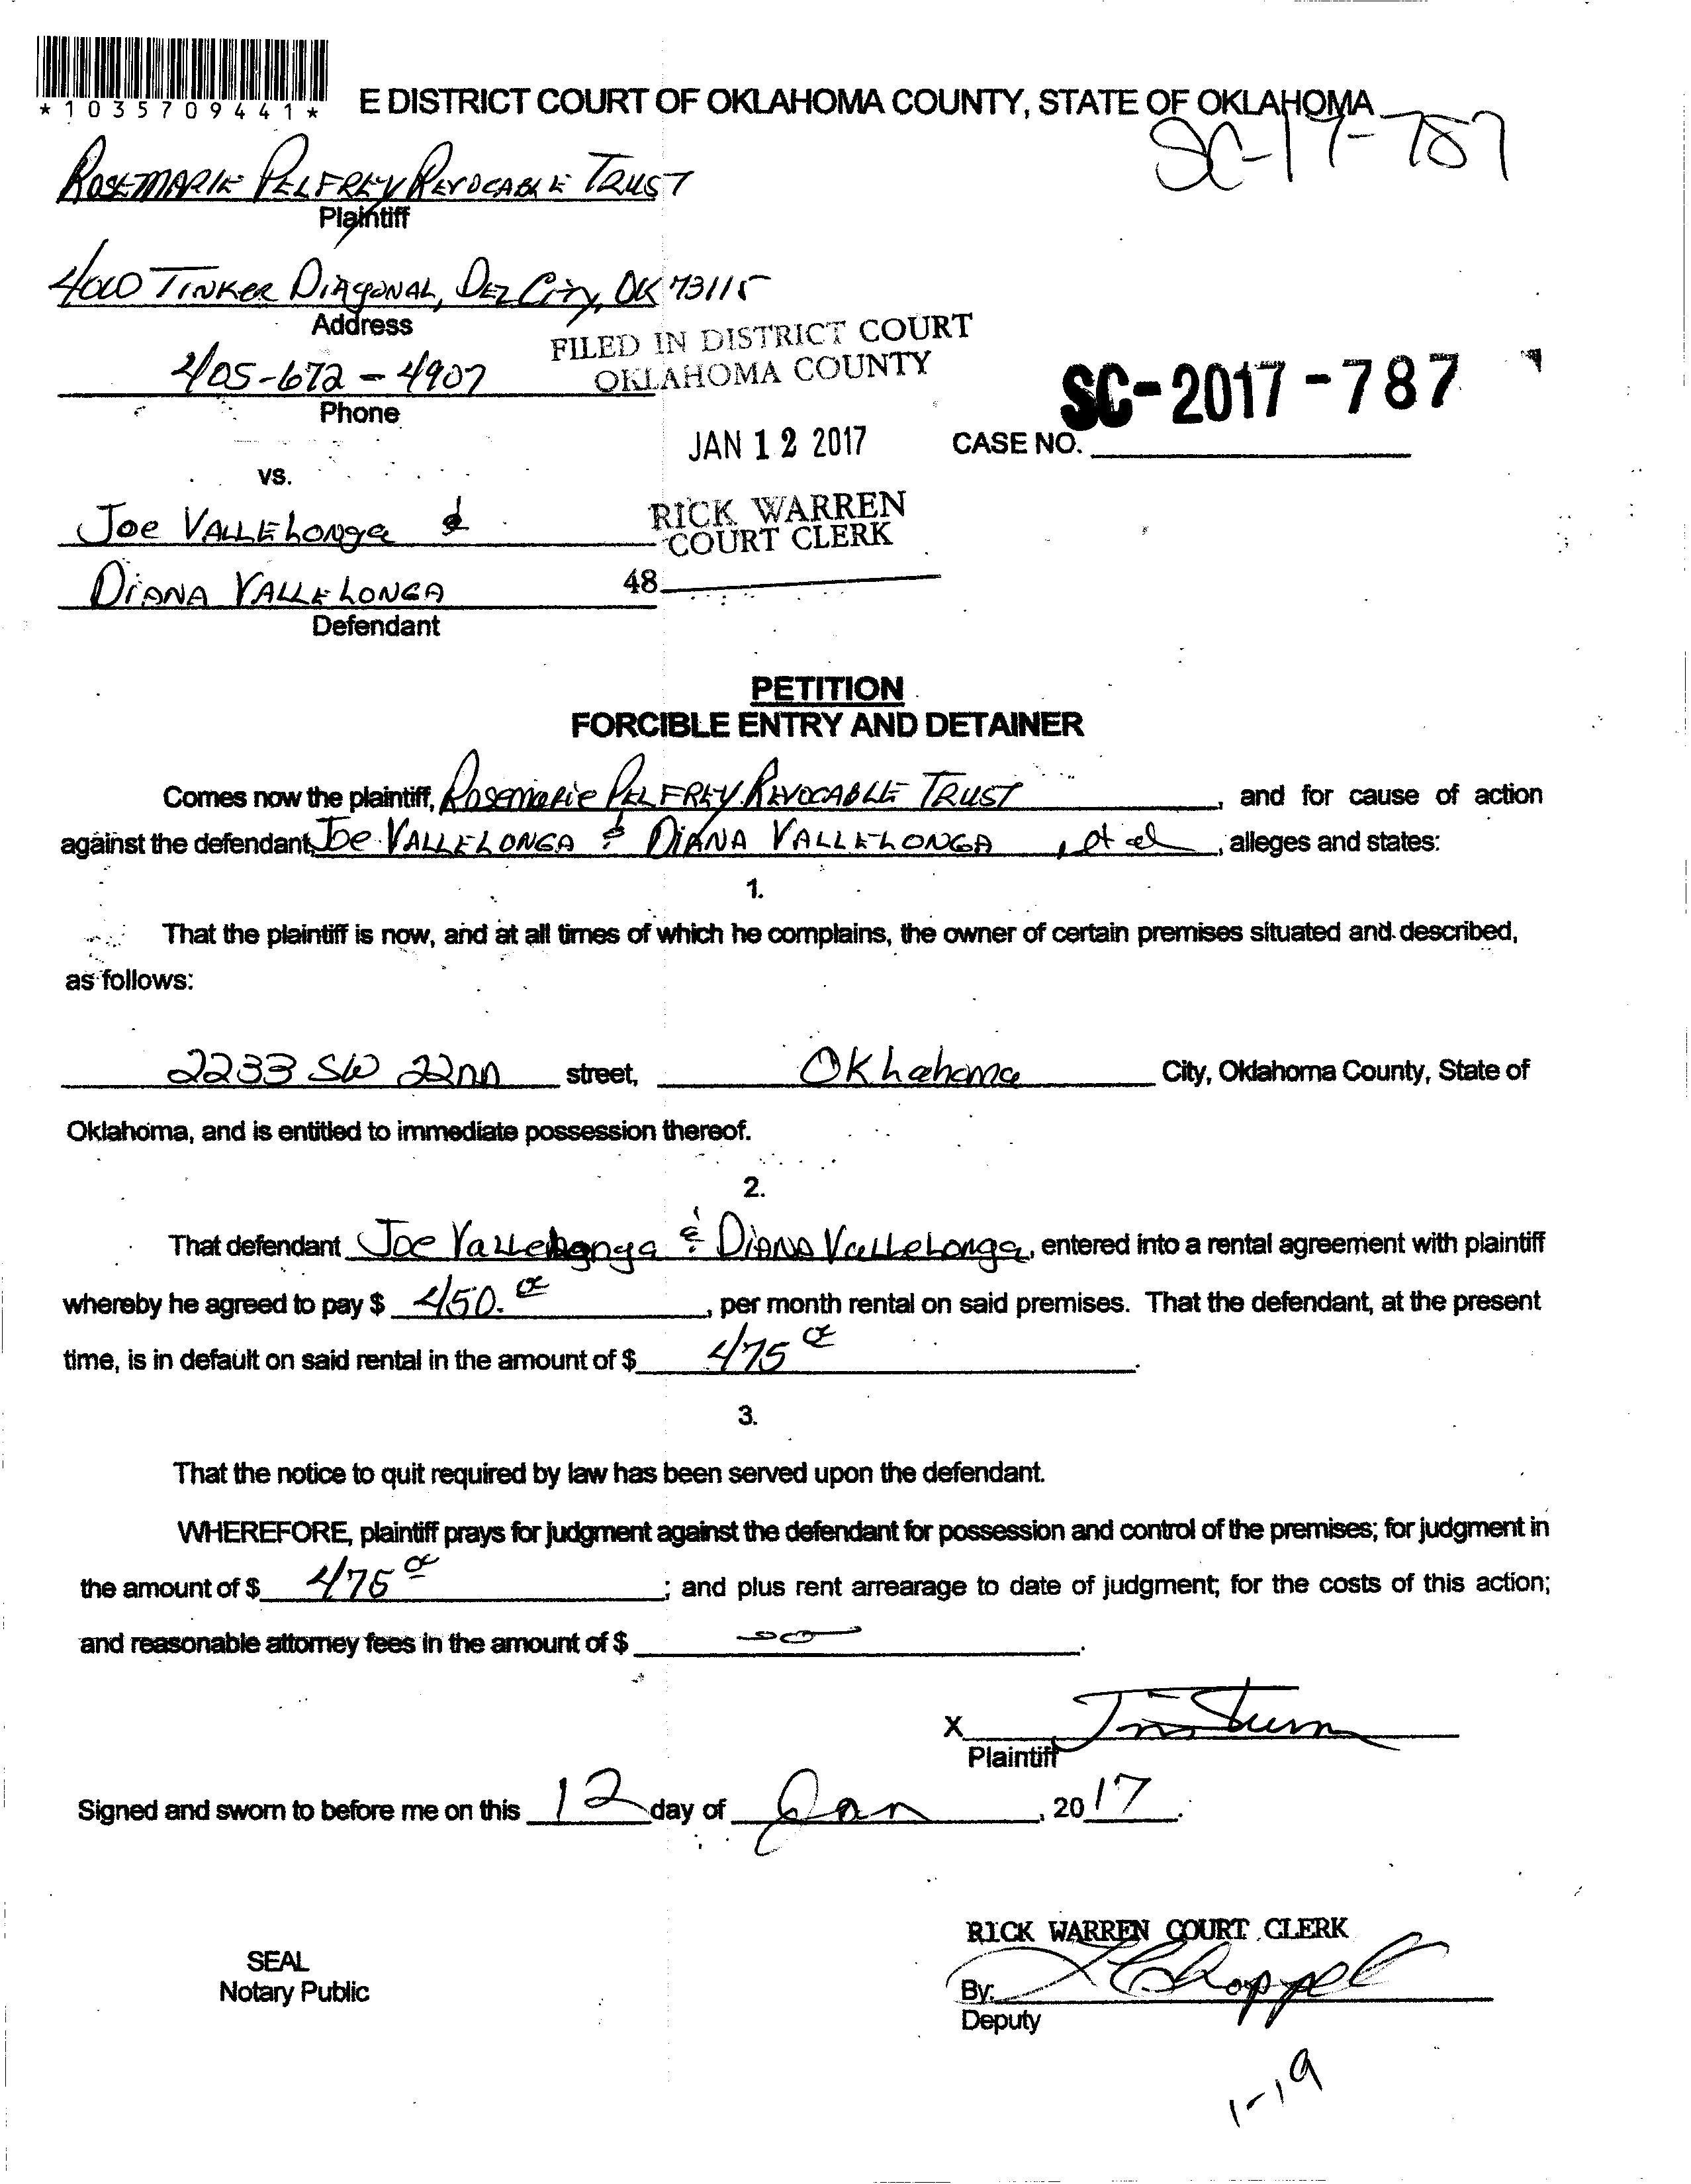 *1035709441*
E DISTRICT COURT OF OKLAHOMA COUNTY, STATE OF OKLAHOMA
SC-17-787
ROSEMARIE PELFREY REVOCABLE TRUST
Plaintiff
TINKER DIAGONAL, DEL CITY, OK 73115
Address
405-672-4907
Phone
FILED IN DISTRICT COURT
OKLAHOMA COUNTY
JAN 12 2017
SC-2017-787
CASE NO.
vs.
JOE VALLELONGA &
RICK WARREN
COURT CLERK
DIANA VALLELONGA
48
Defendant
PETITION
FORCIBLE ENTRY AND DETAINER
Comes now the plaintiff, Rosemarie PELFREY REVOCABLE TRUST, and for cause of action
against the defendant, Joe VALLELONGA & DIANA VALLELONGA, et al, alleges and states:
1.
That the plaintiff is now, and at all times of which he complains, the owner of certain premises situated and described,
as follows:
2233 SW 22nd street, Oklahoma City, Oklahoma County, State of
Oklahoma, and is entitled to immediate possession thereof.
2.
That defendant Joe Vallelonga & DIANA Vallelonga, entered into a rental agreement with plaintiff
whereby he agreed to pay $ 450. , per month rental on said premises. That the defendant, at the present
time, is in default on said rental in the amount of $ 475 .
3.
That the notice to quit required by law has been served upon the defendant.
WHEREFORE, plaintiff prays for judgment against the defendant for possession and control of the premises; for judgment in
the amount of $ 475 ; and plus rent arrearage to date of judgment; for the costs of this action;
and reasonable attorney fees in the amount of $ -0- .
X
Plaintiff
Signed and sworn to before me on this 12 day of Jan, 2017.
RICK WARREN COURT CLERK
SEAL
Notary Public
By:
Deputy
1-19